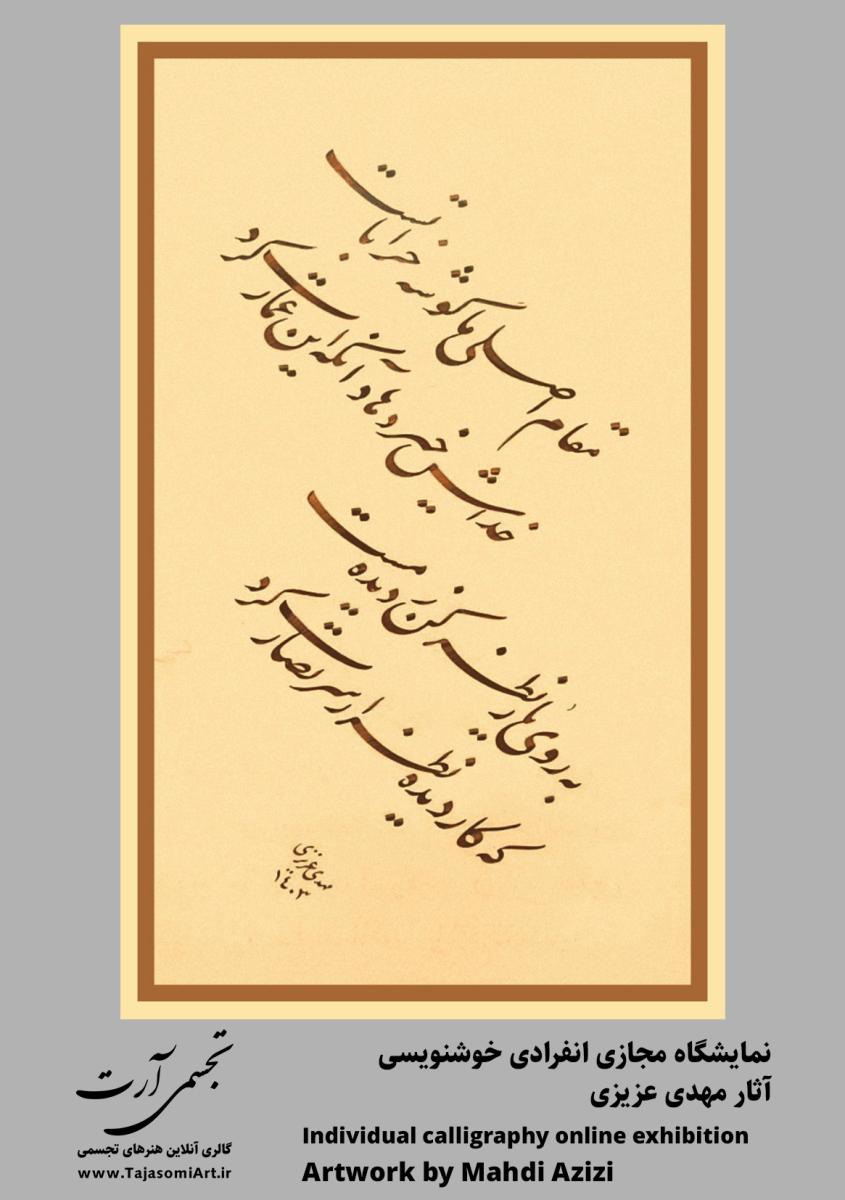 مقام اصلی ما گوشه خراباتست
خداش خیر دهاد آنکه این عمارت کرد
به روی یار نظر کن ز دیده منت
که کار دیده نظر از سر بصارت کرد
مهدی عزیزی
۱۴۰۳
نمایشگاه مجازی انفرادی خوشنویسی
آثار مهدی عزیزی
Individual calligraphy online exhibition
Artwork by Mahdi Azizi
تجسمی آرت
گالری آنلاین هنرهای تجسمی
www.TajasomiArt.ir